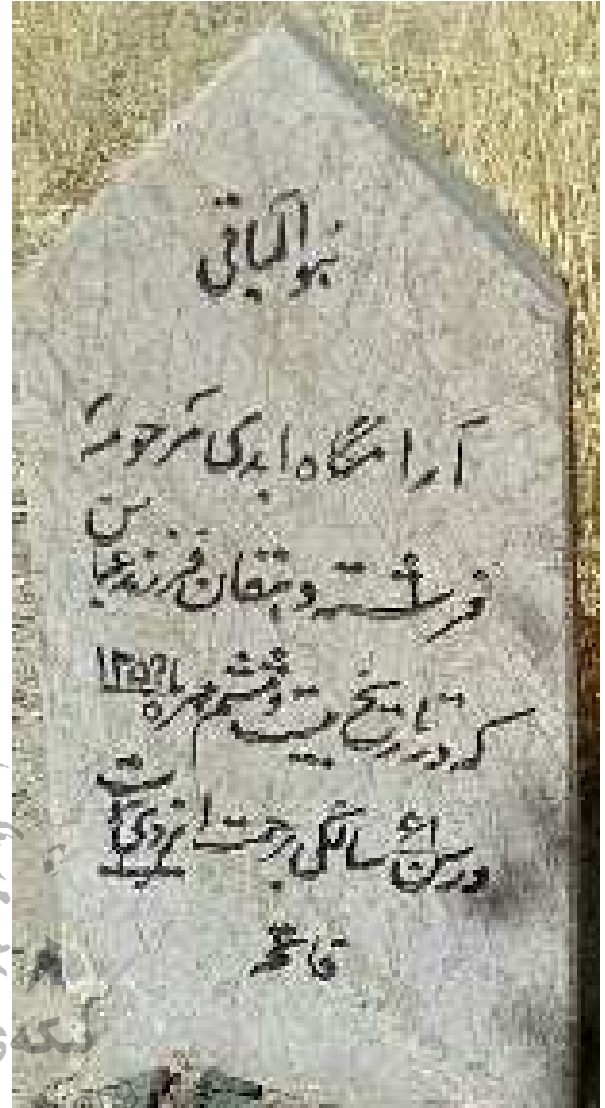 هوالباقی
آرامگاه ابدی مرحومه
فرشته دهقان فرزند عباس
که در تاریخ بیست و هشتم مهر ماه ۱۳۵۲
در سن سالگی برحمت ایزدی پیوست
فاتحه